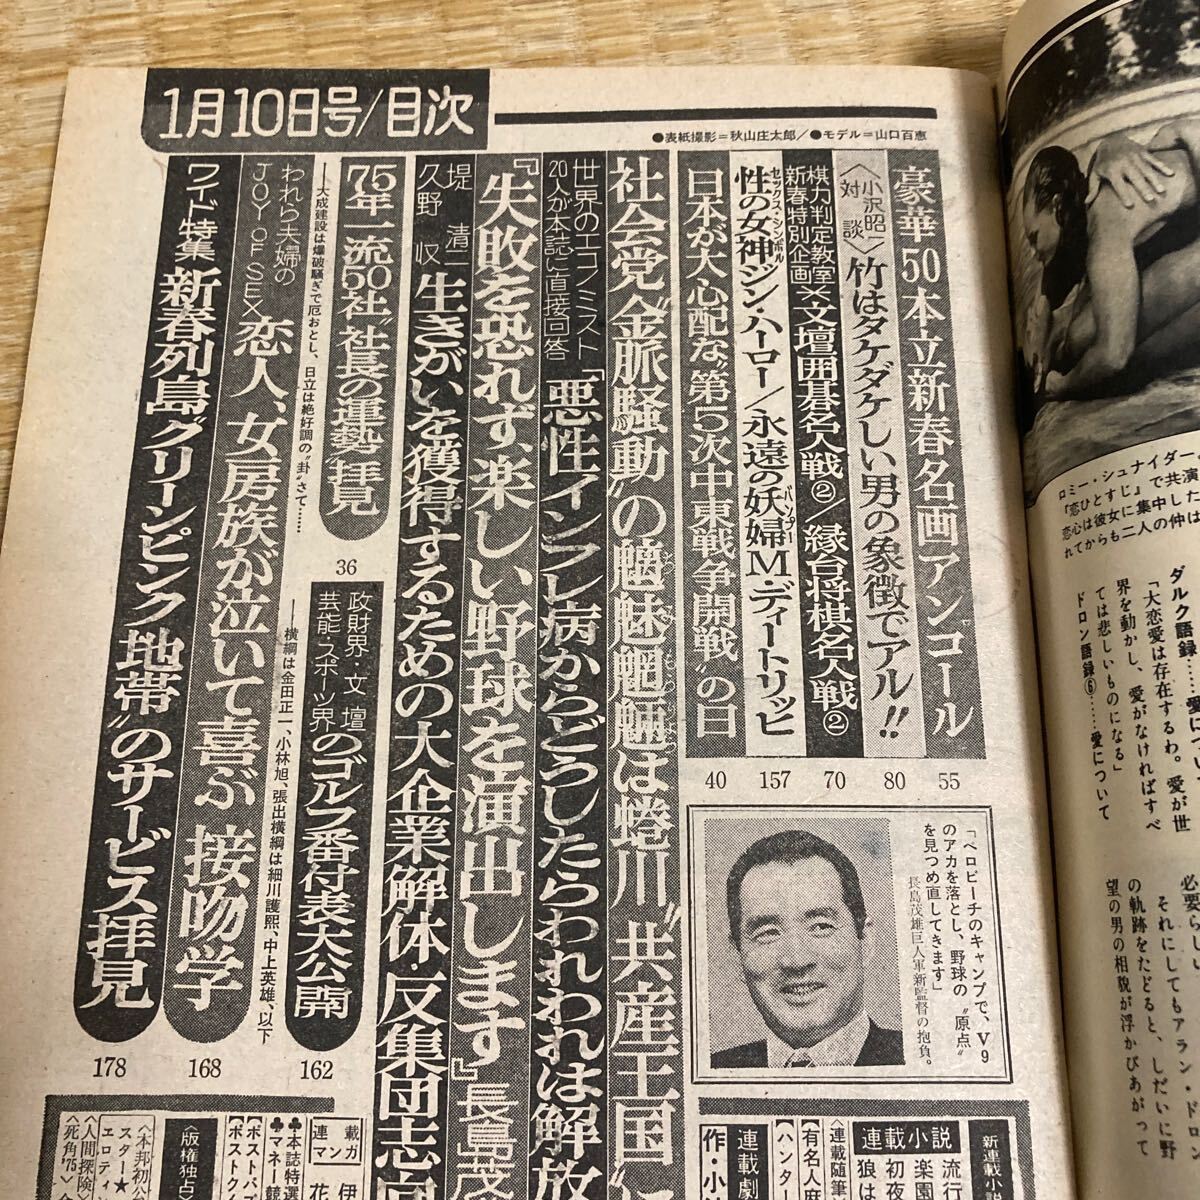 1月10日号/目次
●表紙撮影=秋山庄太郎/●モデル=山口百恵
豪華50本立新春名画アンコール
55
〈小沢昭一対談〉
竹はタケダケしい男の象徴でアル!!
80
棋力判定教室
新春特別企画
×文壇囲碁名人戦②/縁台将棋名人戦②
70
性の女神ジン・ハーロー/永遠の妖婦M・ディートリッヒ
セックス・シンボル
バンプー
157
日本が大心配な“第5次中東戦争開戦”の日
40
社会党“金脈騒動”の魑魅魍魎は蜷川“共産王国”に
世界のエコノミスト
20人が本誌に直接回答
「悪性インフレ病からどうしたらわれわれは解放
『失敗を恐れず、楽しい野球を演出します』長島茂
堤清二
久野収
生きがいを獲得するための大企業解体・反集団志向
75年一流50社“社長の運勢”拝見
――大成建設は爆破騒ぎで厄おとし、日立は絶好調の“卦”さて……
36
政財界・文壇
芸能・スポーツ界
のゴルフ番付表大公開
――横綱は金田正一、小林旭、張出横綱は細川護熙、中上英雄、以下
162
われら夫婦の
JOY OF SEX
恋人、女房族が泣いて喜ぶ 接吻学
168
ワイド特集
新春列島“グリーンピンク地帯”のサービス拝見
178
「ベロビーチのキャンプで、V9
のアカを落とし、野球の“原点”
を見つめ直してきます」
長島茂雄巨人軍新監督の抱負。
新連載小説
連載小説
流行
楽園
初夜
狼は
〈連載随筆
有名人麻
【ハンター
連載劇
作・小
連載
マンガ
伊
花
♣本誌特選
♣マネー競
【ポストパズ
【ポストクイ
〈版権独占〉
〈本邦初公
スター★
エロティ
〈人間探険〉
〈死角'75〉
ロミー・シュナイダー。
『恋ひとすじ』で共演
恋心は彼女に集中した
れてからも二人の仲は
ダルク語録……愛につい
「大恋愛は存在するわ。愛が世
界を動かし、愛がなければすべ
ては悲しいものになる」
ドロン語録⑥……愛について
必要らしい
それにしてもアラン・ドロン
の軌跡をたどると、しだいに野
望の男の相貌が浮かびあがって